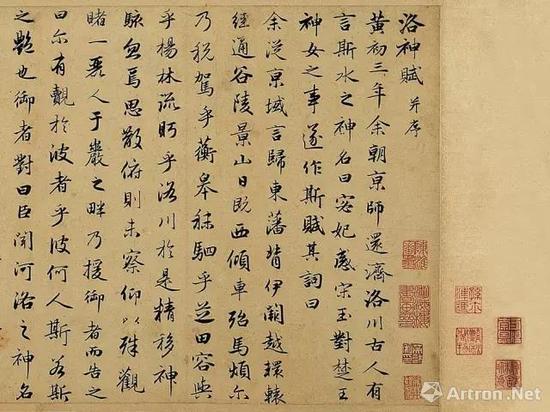 洛神賦 并序
黄初三年余朝京師還濟洛川古人有
言斯水之神名曰宓妃感宋玉對楚王
神女之事遂作斯賦其詞曰
余從京域言歸東藩背伊闕越轘轅
經通谷陵景山日既西傾車殆馬煩尔
乃税駕乎蘅皋秣駟乎芝田容與
乎楊林流眄乎洛川於是精移神
駭忽焉思散俯則未察仰以殊觀
睹一麗人于巖之畔乃援御者而告之
曰尔有覿於彼者乎彼何人斯若斯
之艷也御者對曰臣聞河洛之神名
Artron.Net